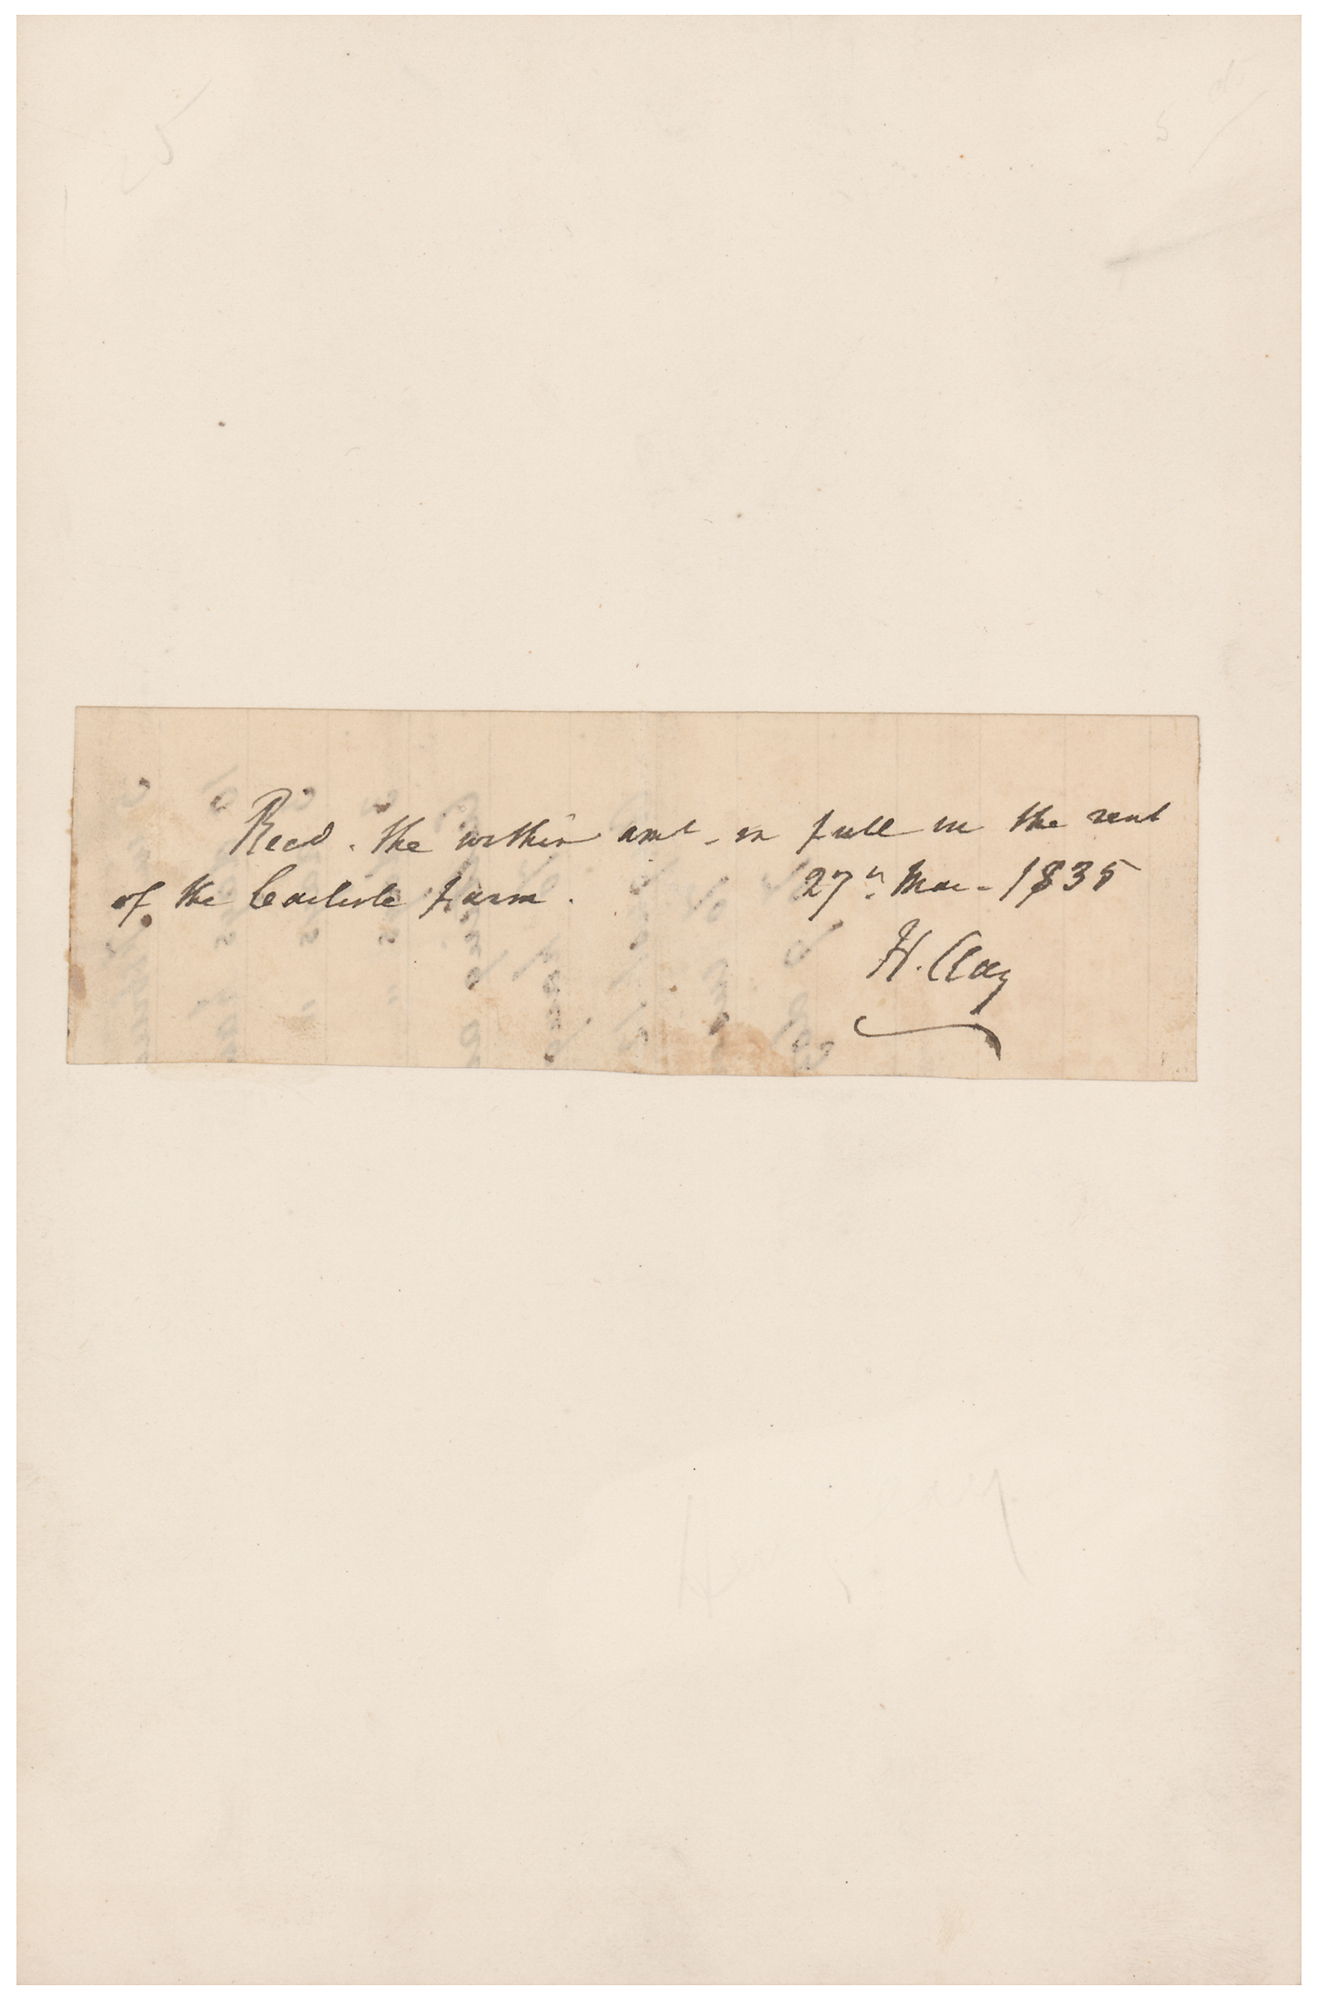 Recd. the within amt. in full in the rent
of the Carlisle farm. 27th. Mar. 1835
H. Clay